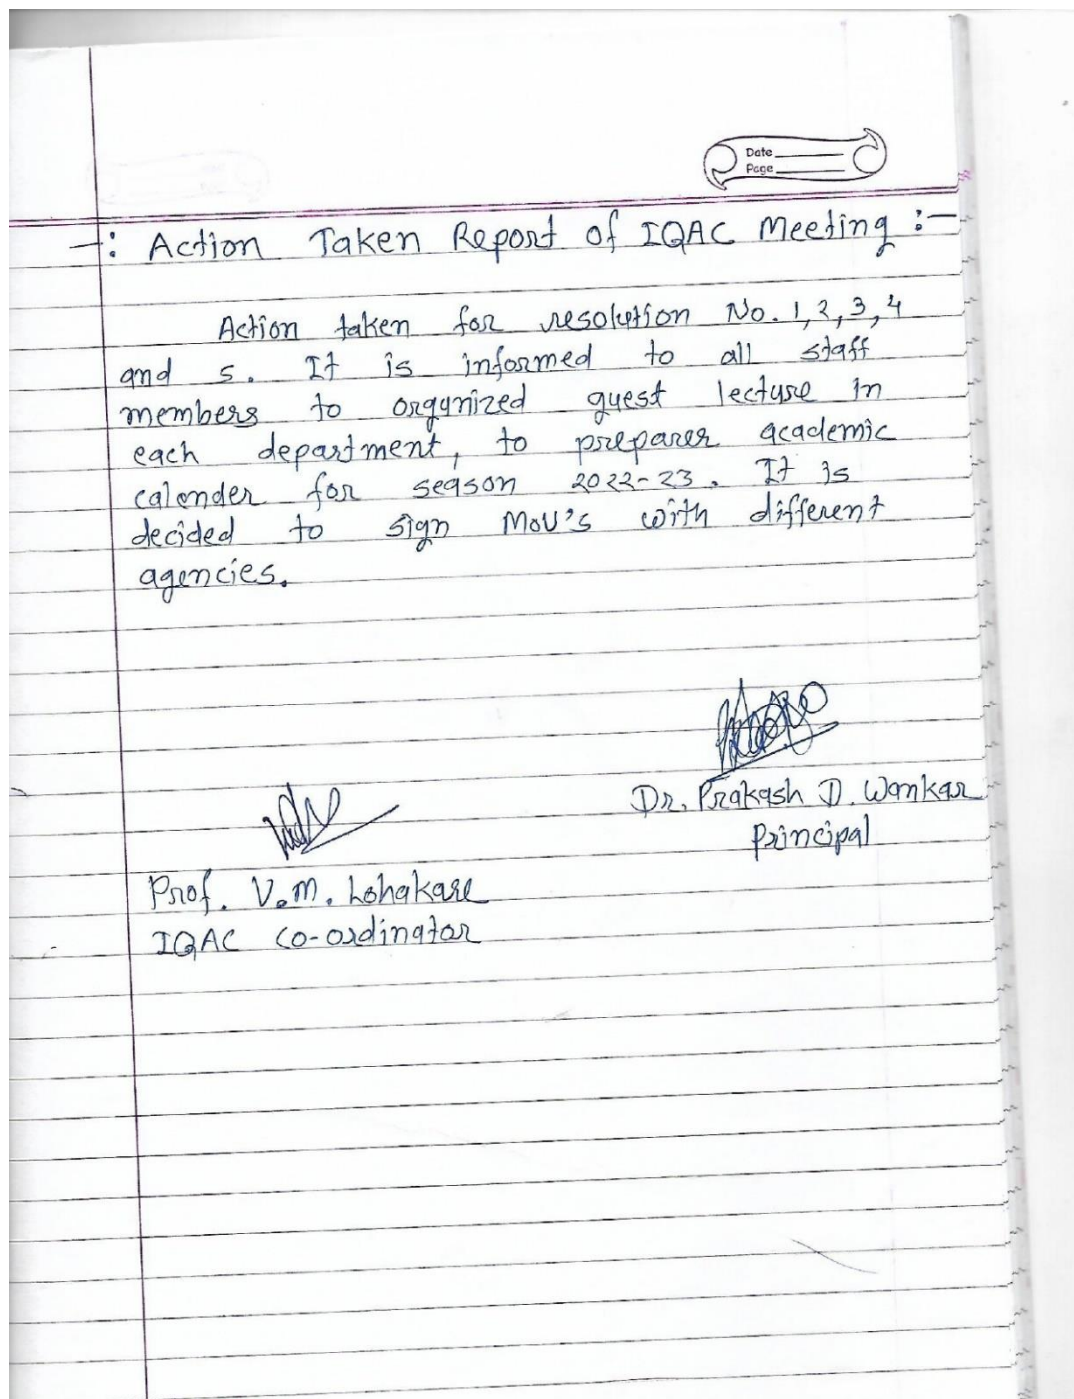 Date
Page
-: Action Taken Report of IQAC Meeting :-
Action taken for resolution No. 1, 2, 3, 4
and 5. It is informed to all staff
members to organized guest lecture in
each department, to preparer academic
calender for season 2022-23. It is
decided to sign MoU's with different
agencies.
Dr. Prakash D. Wankar
Principal
Prof. V.M. Lohakare
IQAC Co-ordinator